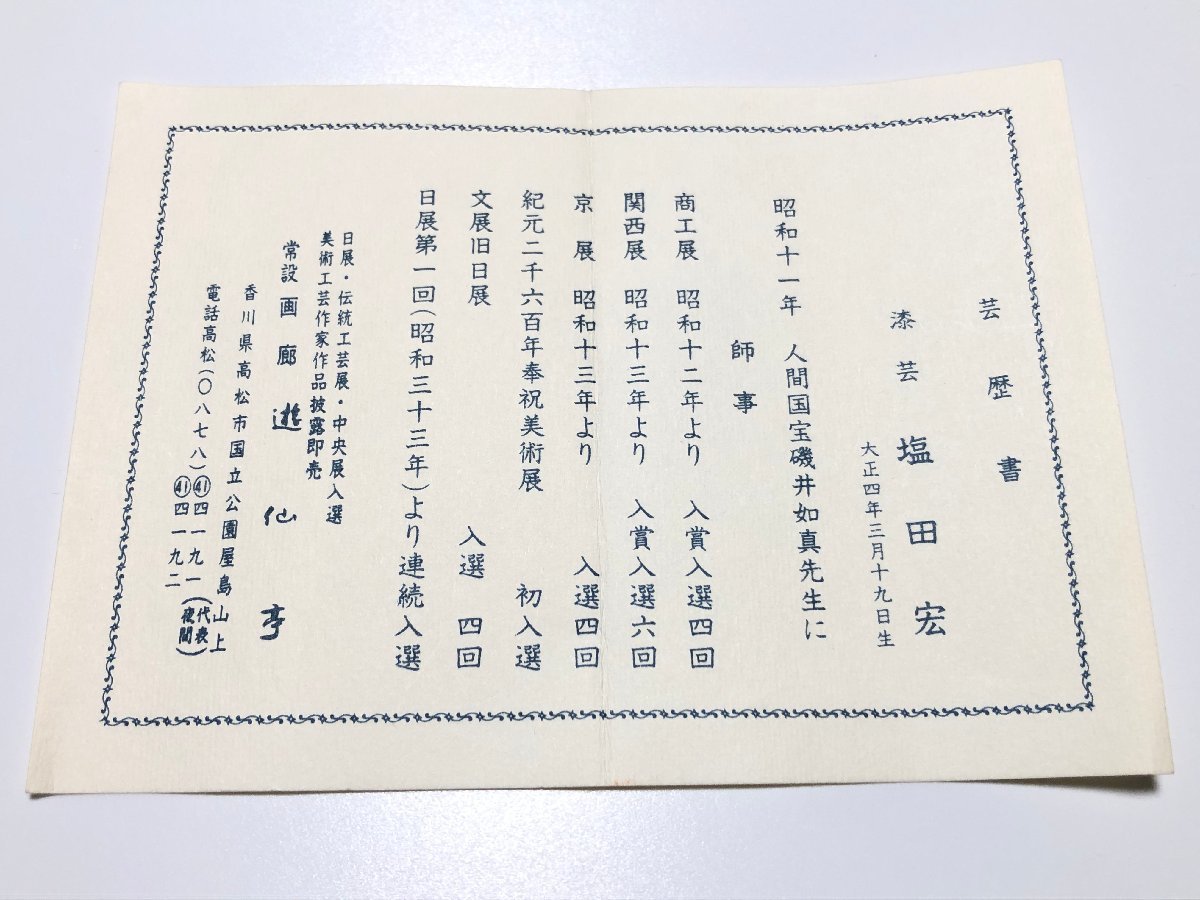 芸歴書
漆芸 塩田宏
大正四年三月十九日生
昭和十一年 人間国宝磯井如真先生に
師事
商工展 昭和十二年より 入賞入選四回
関西展 昭和十三年より 入賞入選六回
京展 昭和十三年より 入選四回
紀元二千六百年奉祝美術展 初入選
文展旧日展 入選 四回
日展第一回(昭和三十三年)より連続入選
日展・伝統工芸展・中央展入選
美術工芸作家作品披露即売
常設画廊 遊仙亭
香川県高松市国立公園屋島山上
電話高松(〇八七八)㊶四一九一(代表)
㊶四一九二(夜間)